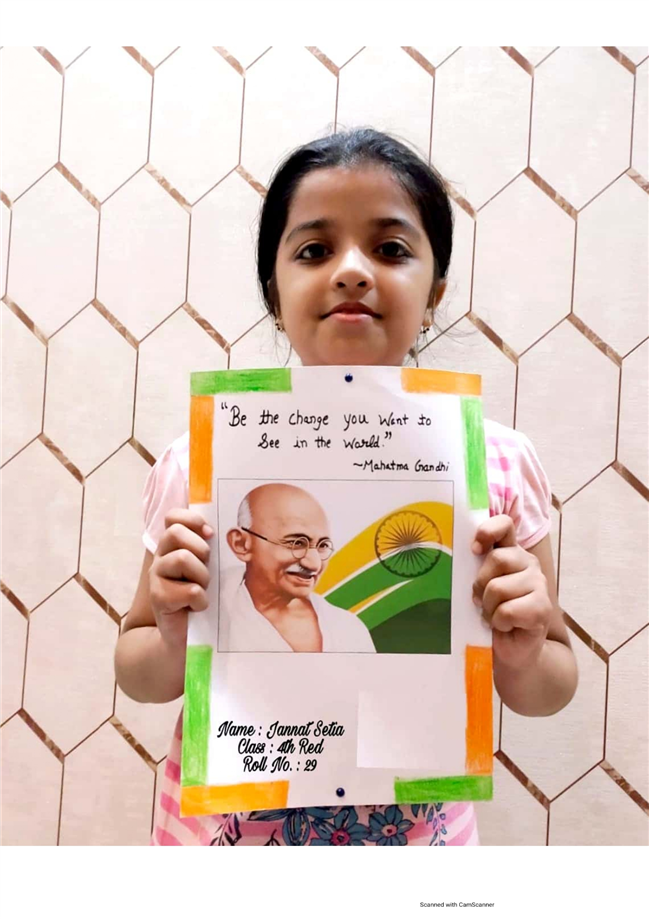 "Be the change you Want to
See in the World."
~Mahatma Gandhi
Name : Jannat Setia
Class : 4th Red
Roll No. : 29
Scanned with CamScanner